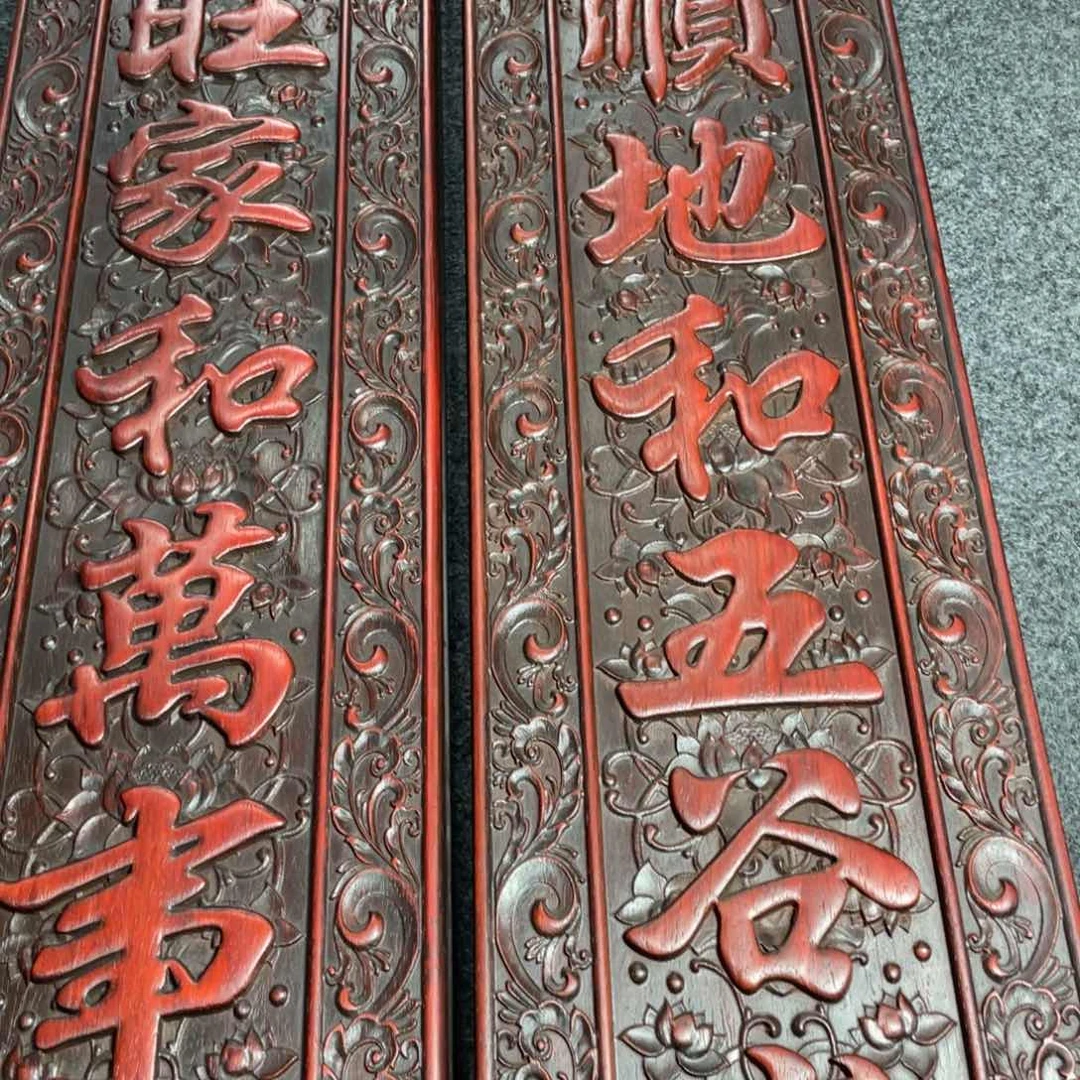 順地和五谷
旺家和萬事